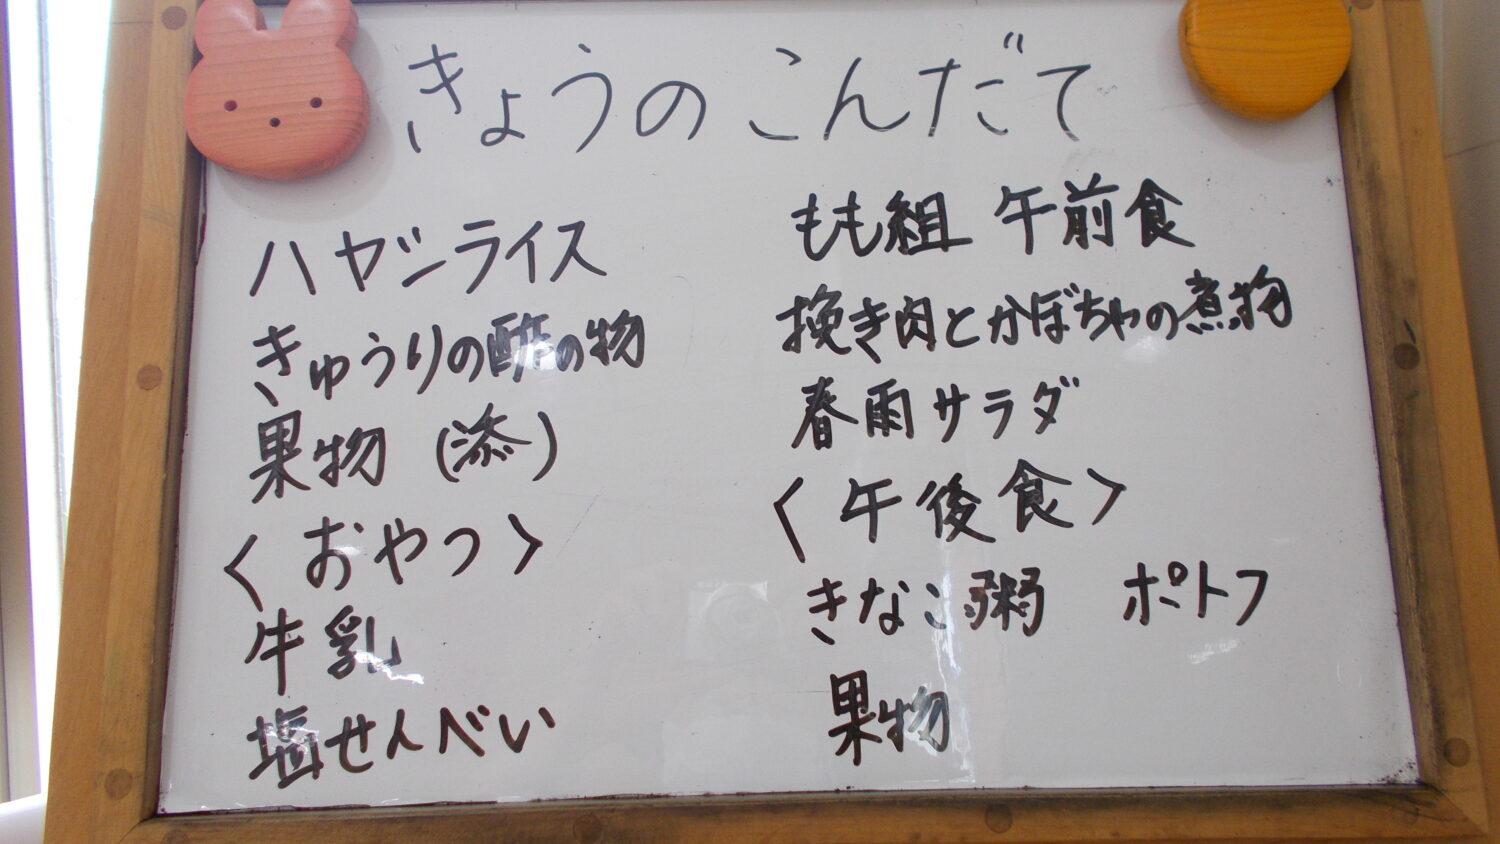 きょうのこんだて
ハヤシライス
きゅうりの酢の物
果物(添)
〈おやつ〉
牛乳
塩せんべい
もも組 午前食
挽き肉とかぼちゃの煮物
春雨サラダ
〈午後食〉
きなこ粥 ポトフ
果物